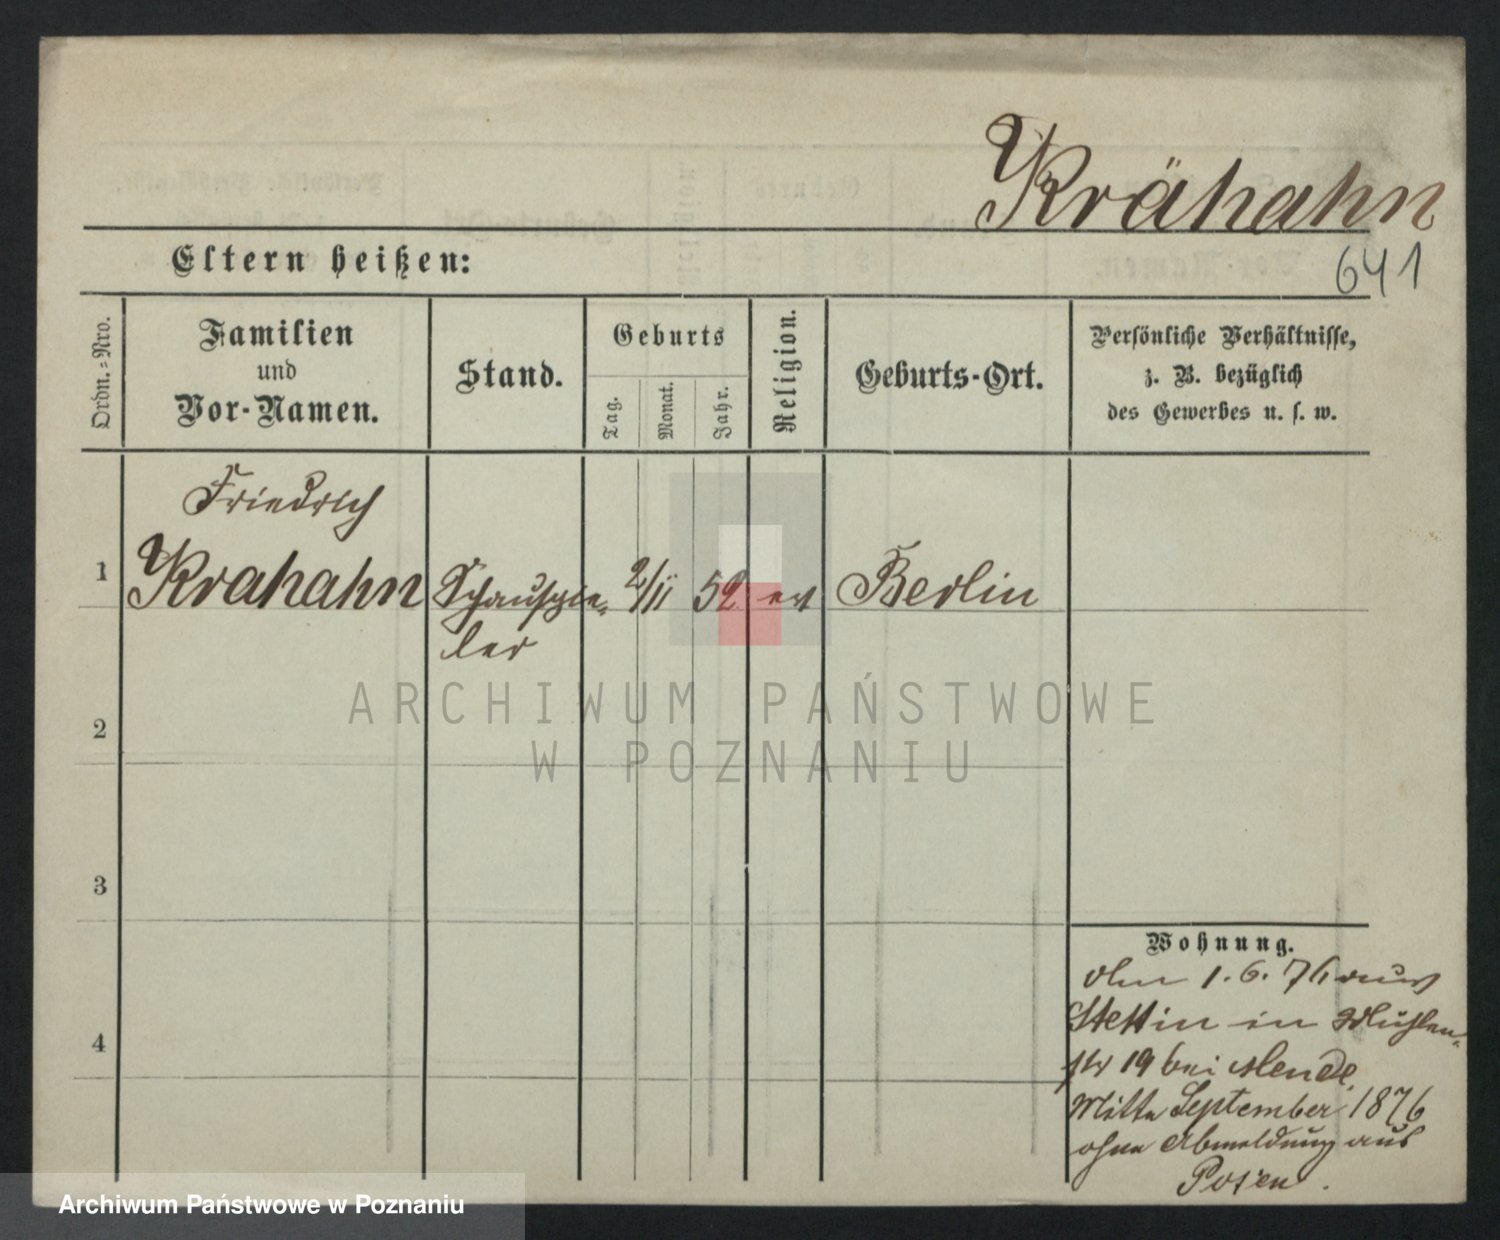 Krähahn
641
Eltern heißen:
Ordn.=Nro.
Familien
und
Vor-Namen.
Stand.
Geburts
Tag.
Monat.
Jahr.
Religion.
Geburts-Ort.
Persönliche Verhältnisse,
z. B. bezüglich
des Gewerbes u. s. w.
Friedrich
1 Krahahn Schauspie= 2/11 52 ev Berlin
ler
2
3
4
Wohnung.
1. 6. 76 aus
Stettin in Mühlen=
str 19 bei Mende.
Mitte September 1876
ohne Abmeldung aus
Posen.
ARCHIWUM PAŃSTWOWE
W POZNANIU
Archiwum Państwowe w Poznaniu